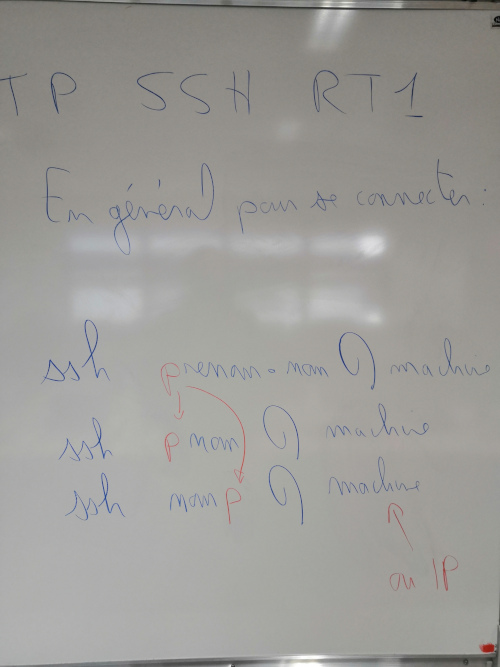 TP SSH RT1
En général pour se connecter :
ssh prenom.nom @ machine
ssh pnom @ machine
ssh nomp @ machine
ou IP